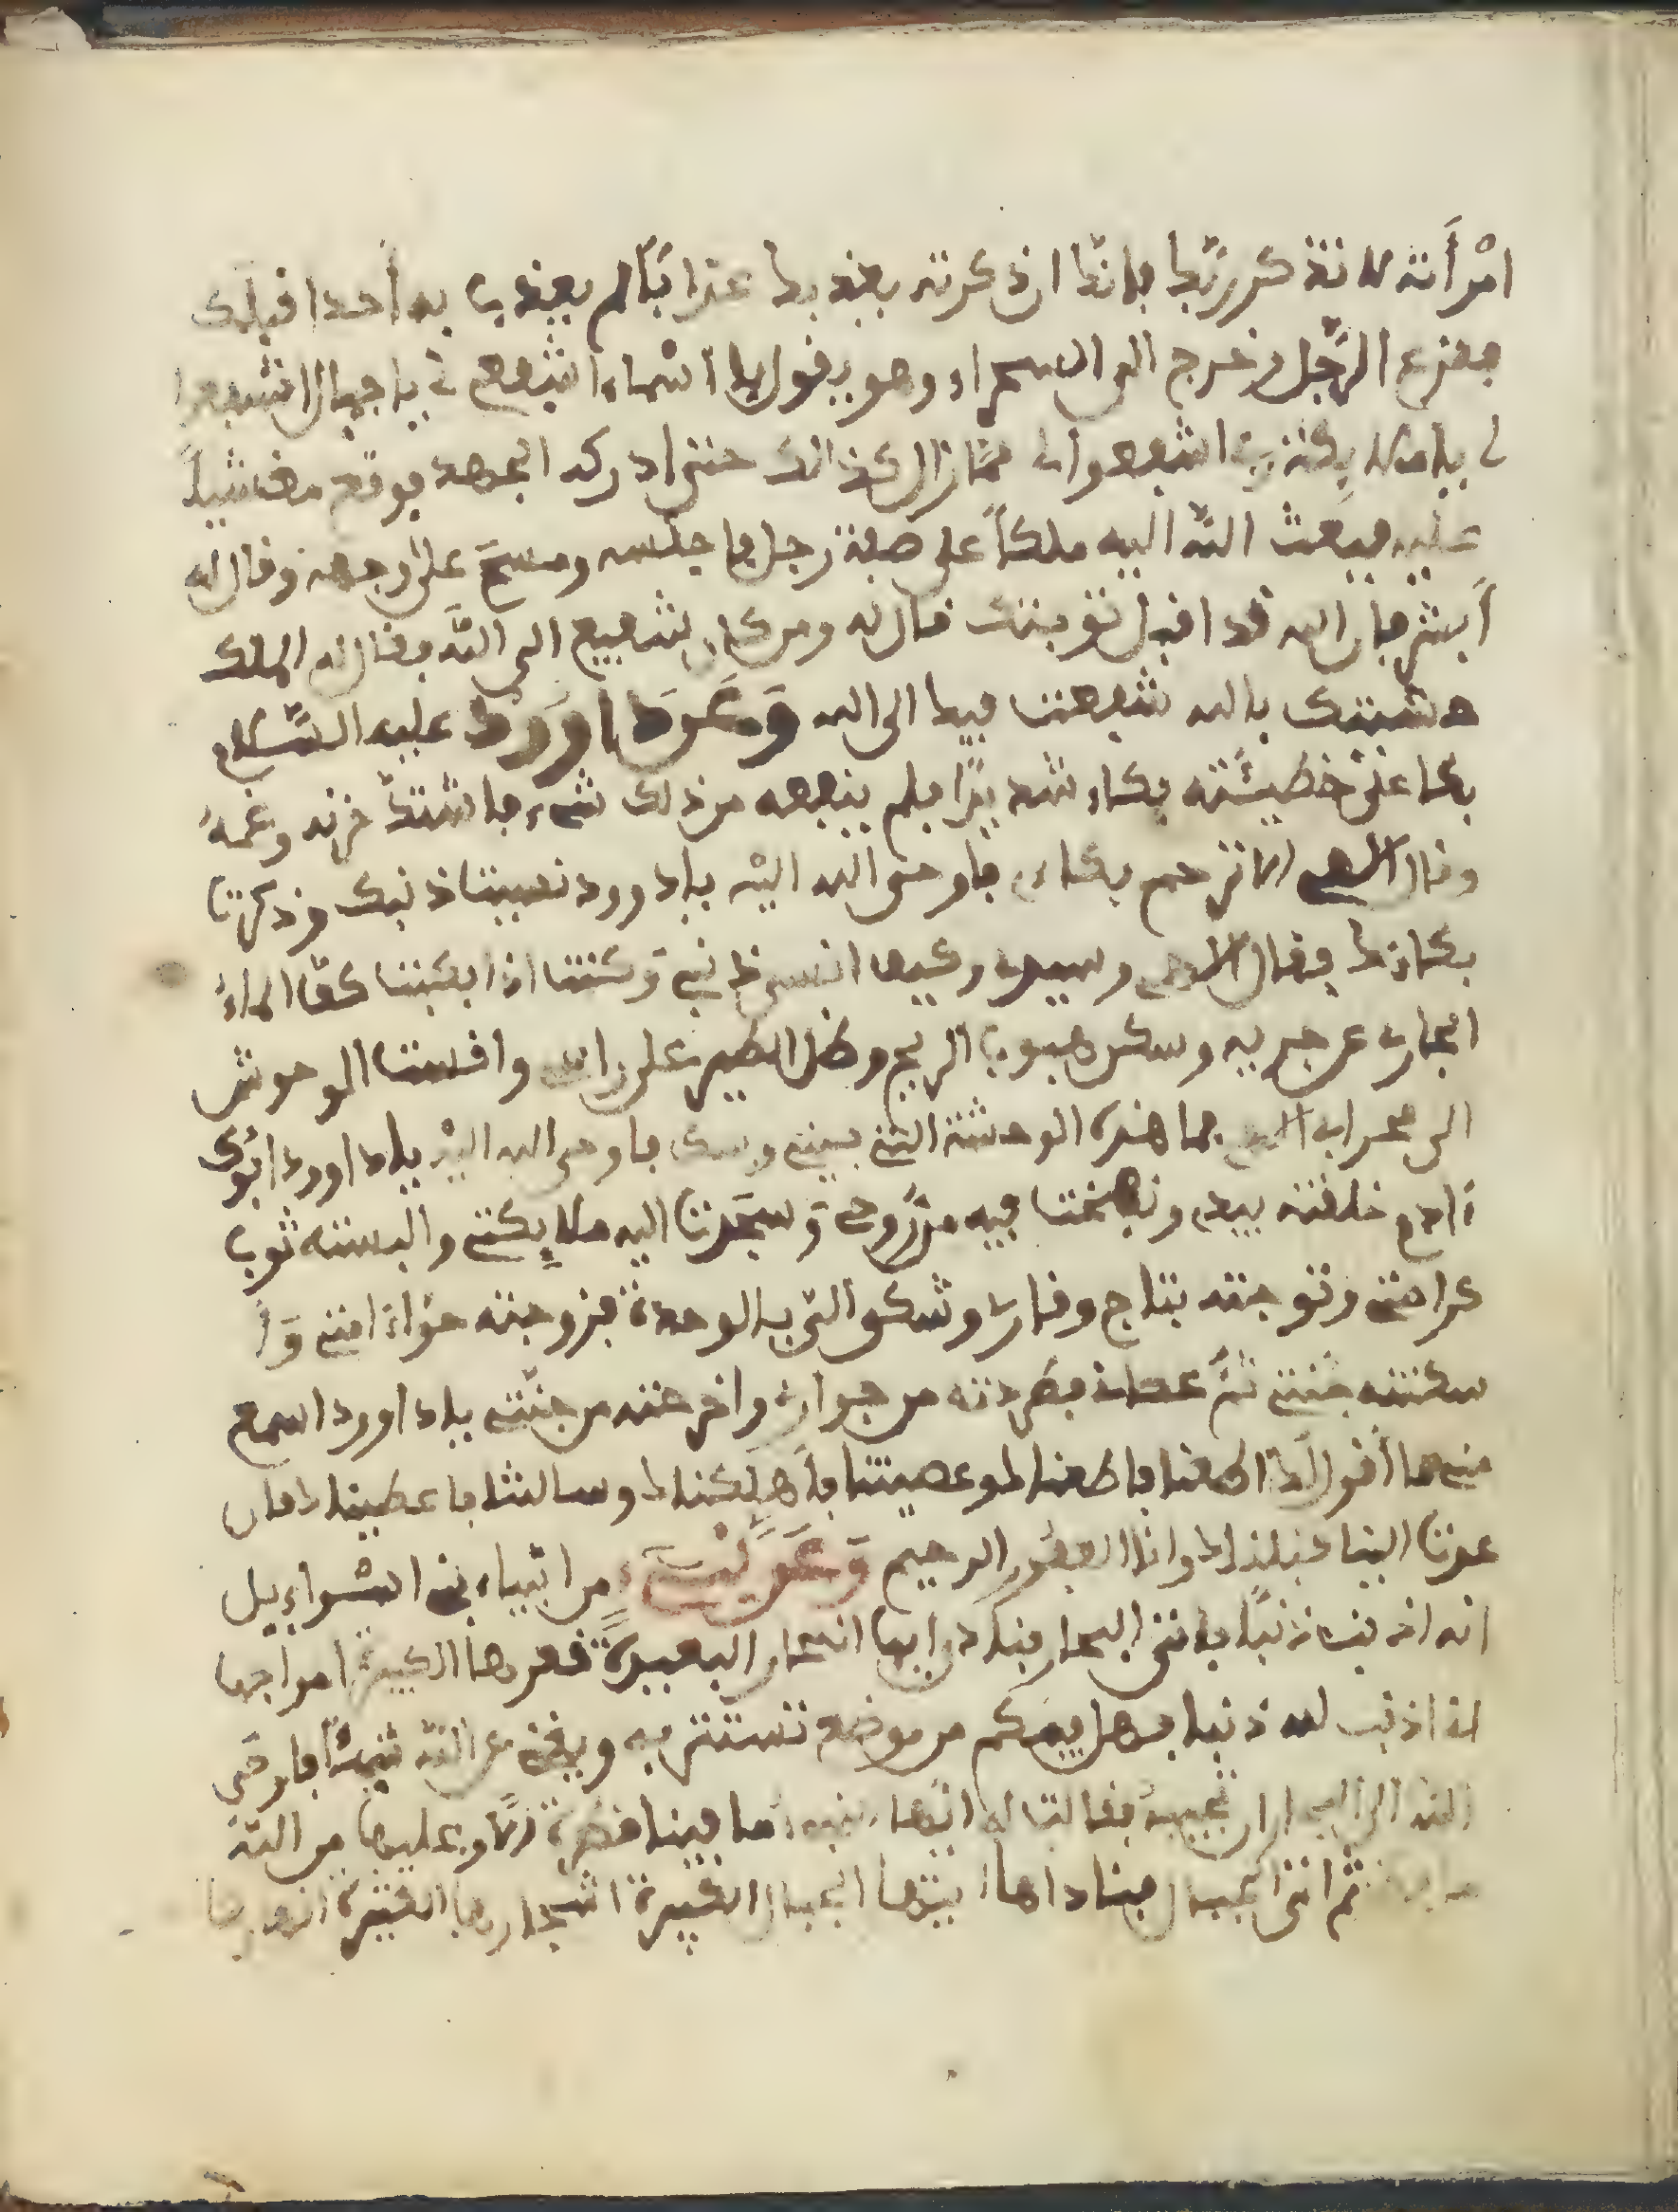 امْرأته لا تذكر ربّك فانّك ان ذكرته يعذبك عذابًا لم يعذب به أحدا قبلك
ففزع الرّجل وخرج الى الصحراء وهو يقول يا اسْماء اشفع لي يا جبال اشفعوا
لي يا ملايكة ربي اشفعوا لي فما زال كذالك حتى ادركه الجهد فوقع مغشياً
عليه فبعث الله اليه ملكاً على صفة رجل فاجلسه ومسحَ على وجهه وقال له
أبشر فان الله قد اقبل توبتك قال له ومن كان شفيع الى الله فقال له الملك
خشيتك بالله شفعت فيك الى الله وَعَن دَاوُودَ عليه السّلام
بكا على خطيئته بكاء شديدًا فلم ينفعه من ذلك شيء فاشتدّ حزنه وغمهُ
وقال الاهي اما ترحم بكاءي فاوحى الله اليْه ياداوود نسيت ذنبك وذكرت
بكاءك فقال الاهي وسيدي وكيف انسى ذنبي وَكنت اذا بكيت كفّ الماءُ
الجاري عن جريه وسكن هبوب الريح وظل الطير على راسي وانست الوحوش
الى محراب الاهي فما هذه الوحشة التي بيني وبينك فاوحى الله اليْه ياداوود
ءادم خلقته بيدي ونفخت فيه من رُّوحي وَسجَدت اليه ملايكتي والبسته ثوب
كرامتي وتوجته بتاج وقاري وشكى اليّ بالوحدة فزوجته حوّاء امتي وَأ
سكنته جنتي ثمَّ عصاني فطردته من جواري واخرجته من جنّتي ياداوود اسمع
مني ما أقول لك اطعنا فاطعناك وعصيتنا فأهلكناك وسالتنا فاعطيناك فان
عدت الينا قبلناك وانا الغفور الرحيم وَعَن نَبيّ من انبياء بني اسْراءيل
انه اذنب ذنبًا فاتى البحار فنادى ايها البحار البعيدة قعرها الكبيرة امواجها
انه اذنب لله ذنبا فهل فيكم من موضع تستتر به ويغني عن الله شيئًا فاوحَى
الله الى البحار ان تجيبه فقالت له ايّها ما فينا قطرة الّا وعليها من الله
ثم اتى الجبال فناداها ايتها الجبال الكثيرة اشجارها الكثيرة